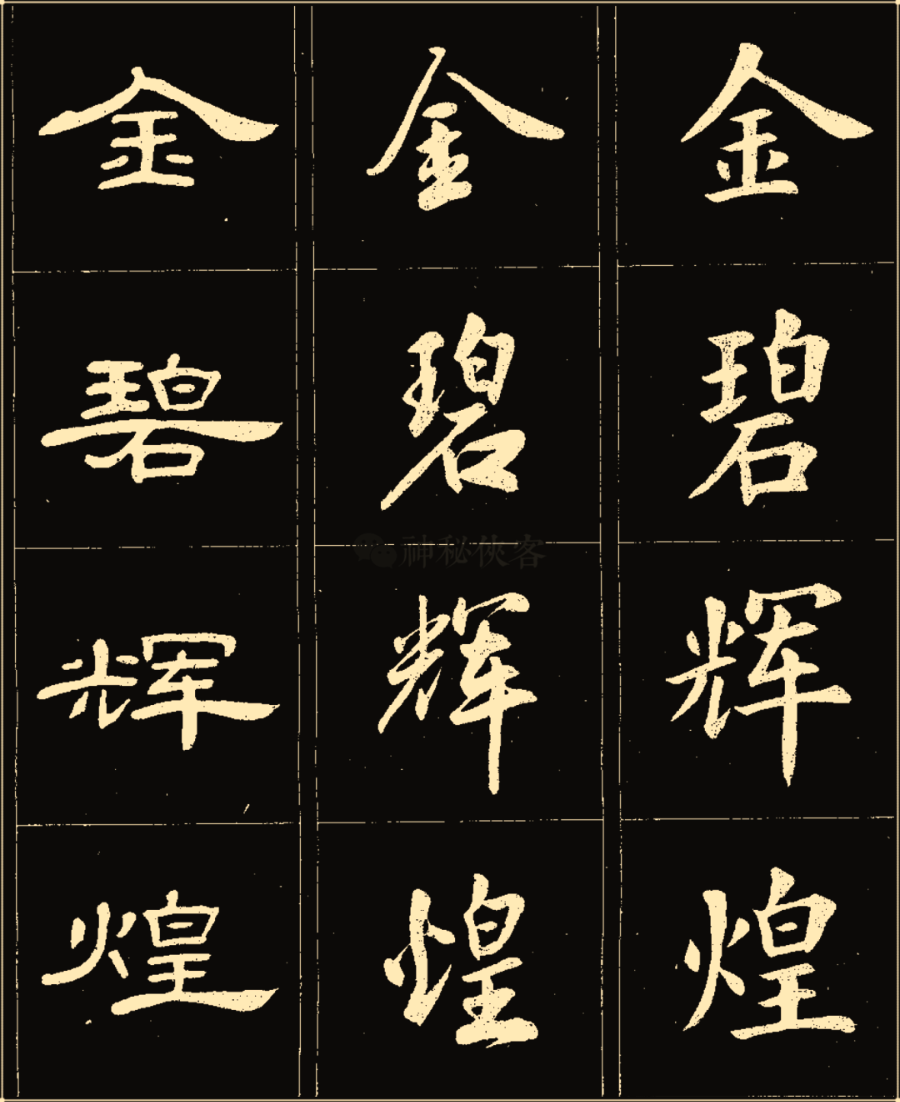 金 金 金
碧 碧 碧
辉 辉 辉
煌 煌 煌
神秘侠客